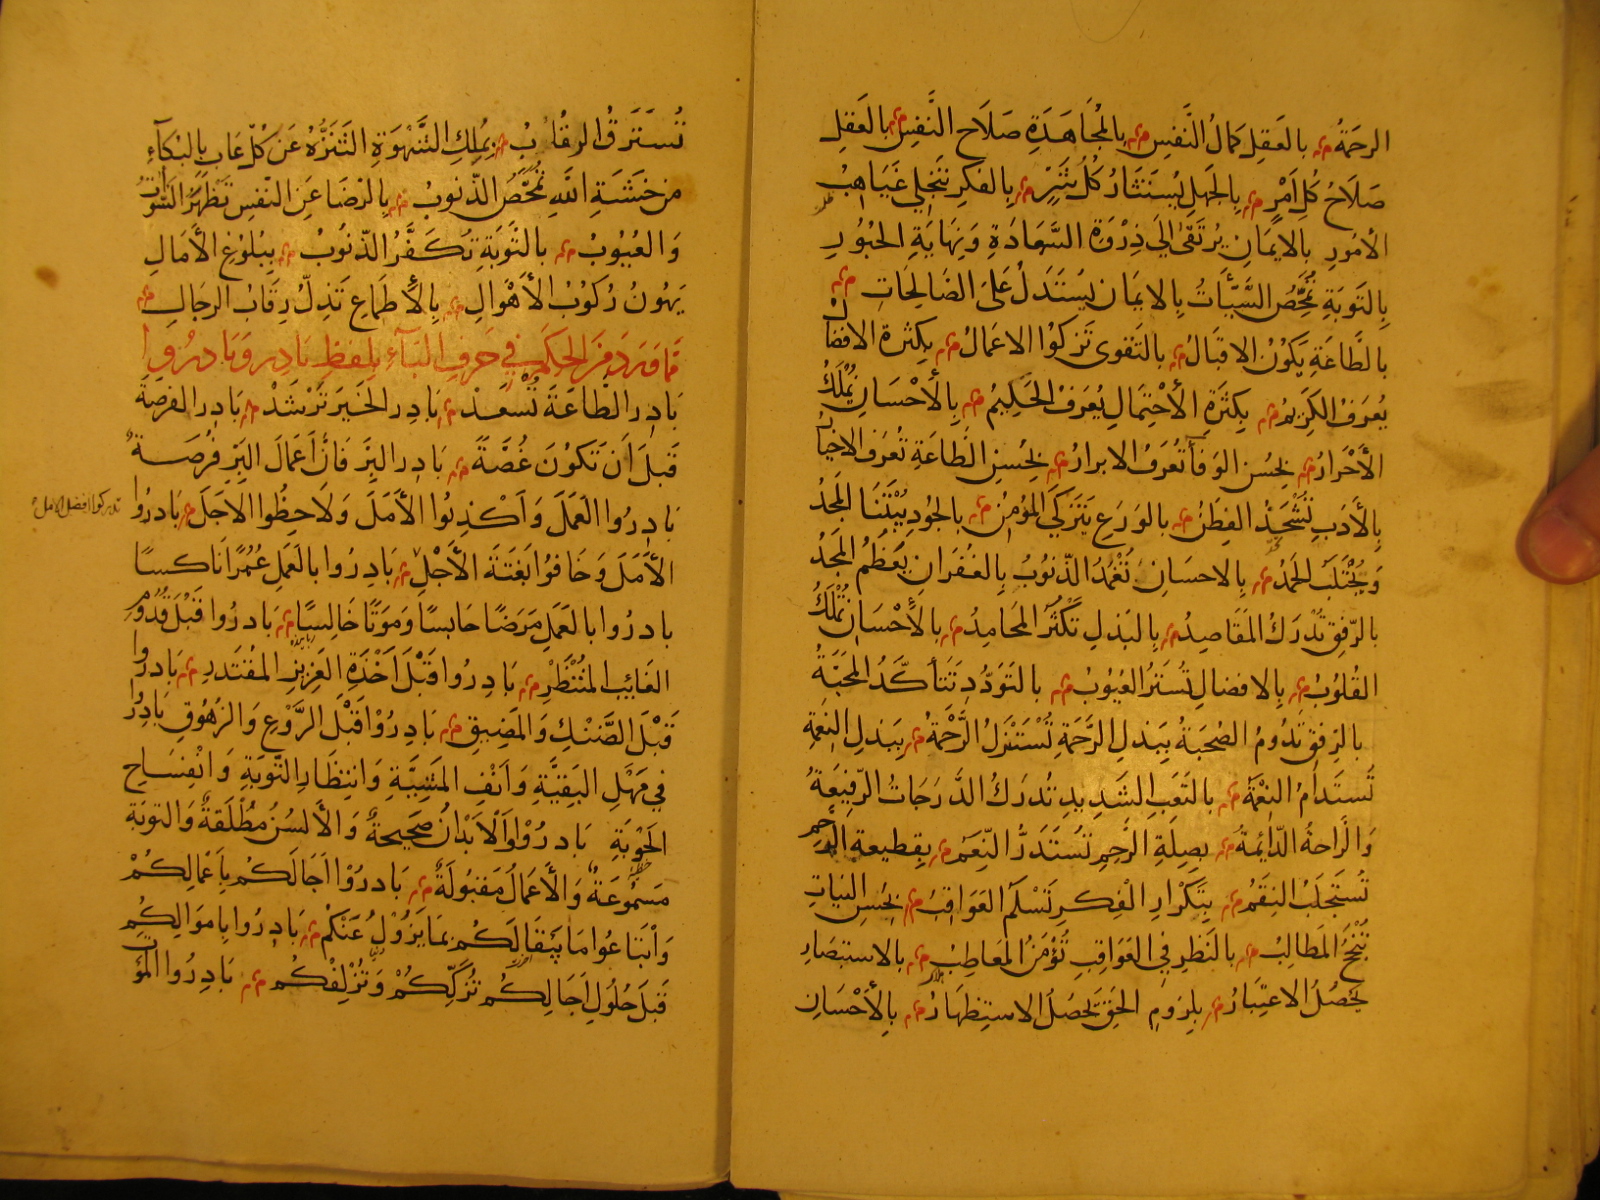 الرحمَةُ بالعَقلِ كمالُ النَّفسِ بالمُجَاهَدَةِ صَلَاح النّفسِ بالعَقلِ
صَلَاحُ كُلِّ اَمْرٍ بالجَهلِ يُستَثَارُ كُلُّ شَرٍّ بِالفَكرِ تنجَلي غَيَاهِبُ
الأمُورِ بالايمَانِ يُرتَقىٰ الَى ذِرْوَةِ السَّعَادَةِ وَنِهَايَةِ الحُبُورِ
بِالتَوبَةِ تُمَحَّصُ السَّيِّئَاتُ بِالايمَانِ يُستَدَلُّ عَلىَ الصَّالِحَاتِ
بالطَّاعَةِ يَكُونُ الاقبَالُ بالتَقوى تَزكُوا الاعمَالُ بكثرةِ الافضا
يُعرَفُ الكَرِيمُ بِكثَرَةِ الأحْتِمَالِ يُعرَفُ الحَلِيمُ بِالأَحْسَانِ تُمْلَكُ
الأَحْرَارُ بحُسْنِ الوَفَآءِ تُعرَفُ الابرارُ بحُسنِ الطَّاعَةِ تُعرَفُ الاخيا
بِالأَدَبِ تُشْحَذُ الفِطَنُ بالوَرَعِ يَتَزكَّي المُؤمِنُ بالجُودِ يُبْتَنَا المَجدُ
وَيُجْتَلَبُ الحَمدُ بِالاحسَانِ تُغمَدُ الذّنوُبُ بِالغُفرَانِ يَعظُمُ المَجدُ
بالرِّفقِ تُدرَكُ المَقَاصِدُ بِالبَذلِ تَكْثُرُ المَحَامِدُ بالأَحْسَانِ تُمْلَكُ
القُلوُبُ بِالافضالِ تُستَرُ العُيُوبُ بالتَوَدّدِ تَتَأكَّدُ المَحَبَّةُ
بالرِفقِ تَدُومُ الصُحبَةُ ببَذلِ الرَّحَمةِ تُسْتَنْزَلُ الرَّحْمَةُ ببَذلِ النِعَمةِ
تُستَدَامُ النِعْمَةُ بالتَعَبِ الشَدِيدِ تُدرَكُ الدَّرَجَاتُ الرّفيعَةُ
وَالَّراحةُ الدّائِمةُ بصِلَةِ الرَّحِمِ تُستَدَرُّ النِّعَمُ بقِطيعة الرَّحِمِ
تُستَجلَبُ النِقَمُ بتَكْرَارِ الْفِكرِ تَسْلَمُ العَوَاقبُ بحُسِن النيَاتِ
تُنْجَحُ المَطَالِبُ بالنَظرِ فِي العَوَاقبِ تُؤْمَنُ المَعَاطِبُ بالاستبصَارِ
يَحصُلُ الاعتِبارُ بلزوُمِ الحَقِّ يَحصُلُ الاستِظهَارُ بالأَحْسَانِ
تُستَرَقُ الرِقُابُ بِمُلِكِ الشَّهْوَةِ التَنَزُّهُ عَن كُلّ عَابٍ بِالبُكآءِ
مِن خَشَيَةِ اللهِ تُمَحَّصُ الذّنوبُ بِالرّضَا عَنِ النَّفسِ تَظْهَرُ السَّوْآتُ
وَالعُيُوبُ بالتَّوبَةِ تُكَفَّرُ الذّنوُبُ ببُلوُغِ الأَمَالِ
يَهُونُ رُكوُبُ الأَهْوَالِ بِالأَطمَاعِ تَذِلُّ رِقَابُ الرجَالِ
مَّا وَرَدَ مِنَ الحِكَمِ في حَرفِ البَآءِ بلفظِ بَادِر وَبَادرُوا
بَادِر الطَاعَةَ تَسْعَد بَادِر الخَيَر تَرْشَدْ بَادِر الفرصَةَ
قَبلَ اَن تَكوُنَ غُصَّةً بَادِر البِرَّ فَانَّ اَعمَالَ البِرِّ فُرصَةٌ
بَادِرُوا العَمَلَ وَاَكْذِبُوا الأَمَلَ وَلاَحِظُوا الاَجَلَ بَادرُوا
تدركوا افضل الامل
الأمَلَ وَخَافوُا بَغَتَةَ الأَجَلِ بَادِرُوا بالعَمَلِ عُمُرًا نَاكسًا
بادرُوا بالعَمَلِ مَرَضًا حَابسًا وَمَوتًا خَالِسًا بَادرُوا قَبْلَ قُدُومِ
الغَائِبِ المُنْتَظَرِ بَادِرُوا قَبْلَ اَخْذَةِ العَزِيزِ المُقتَدرِ بَادرُوا
قَبْلَ الضَّنْكِ وَالمَضِيقِ بَادِرُوْا قَبْلَ الرَّوْعِ وَالزهُوُقِ بَادِرُوا
فِي مَهَلِ البَقِيَّةِ وَاَنْفِ المَشِيَّةِ وَانتِظَارِ التَّوبَةِ وَانْفِسَاحِ
الحَوْبَةِ بَادرُوْا وَالْاَبْدَانُ صَحِيحةٌ وَالأَلسُنُ مُطْلَقةٌ وَالتوبَة
مَسْمُوعَةٌ وَالأعمَالُ مَقبُولَةٌ بَادرُوْا اَجَالَكُمْ بِاَعْمَالِكُمْ
وَاْبتَاعُوا مَا يَبَقَا لَكُم بمَا يَزُولُ عَنَكُمْ بَادِرُوا بِاَموَالِكُم
قَبلَ حُلُولِ اَجَالِكُم تُزَكِّكُمْ وَتُزْلِفْكُم بَادِرُوا المَوَت